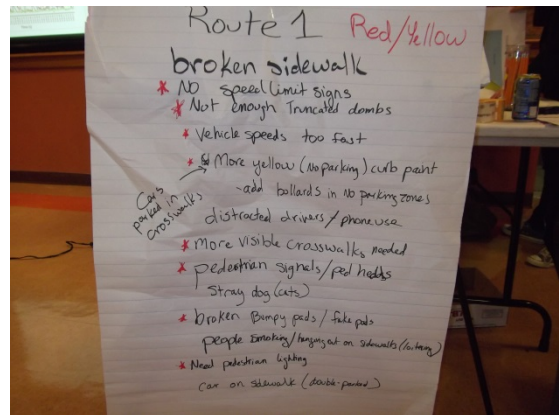 Route 1 Red/Yellow
broken sidewalk
* No speed limit signs
* Not enough Truncated dombs
* Vehicle speeds too fast
* More yellow (No parking) curb paint
Cars parked in crosswalks
- add bollards in No parking zones
distracted drivers / phone use
* More visible crosswalks needed
* pedestrian signals / ped
Stray dog (cats)
* broken Bumpy pads / fake pads
people smoking / hanging out on sidewalks (loitering)
* Need pedestrian lighting
car on sidewalk (double-parked)